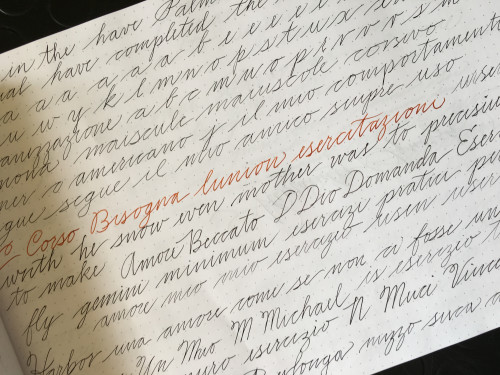 in the have Palm
ual have completed the
a a a a a a b e e e e e
u w y k l m n o p s t u x
anizzazione a b c m u o p r v v s m
mona maiscule maiuscole corsivo
ner o americano j il mio comportamento
gue segue il mio amico sempre uso
o Corso Bisogna lunion esercitazioni
worth he snow even mother was to precisiu
to make Amore Beccato D Dio Domanda Eser
fly gemini minimum esercizi pratici pr
amore mio mio esercizio usen userv
Harbor una amore come se non ci fosse un
Un Muo M Michael is esercizio
muro esercizio N Muci Vince
nuzzo suca a